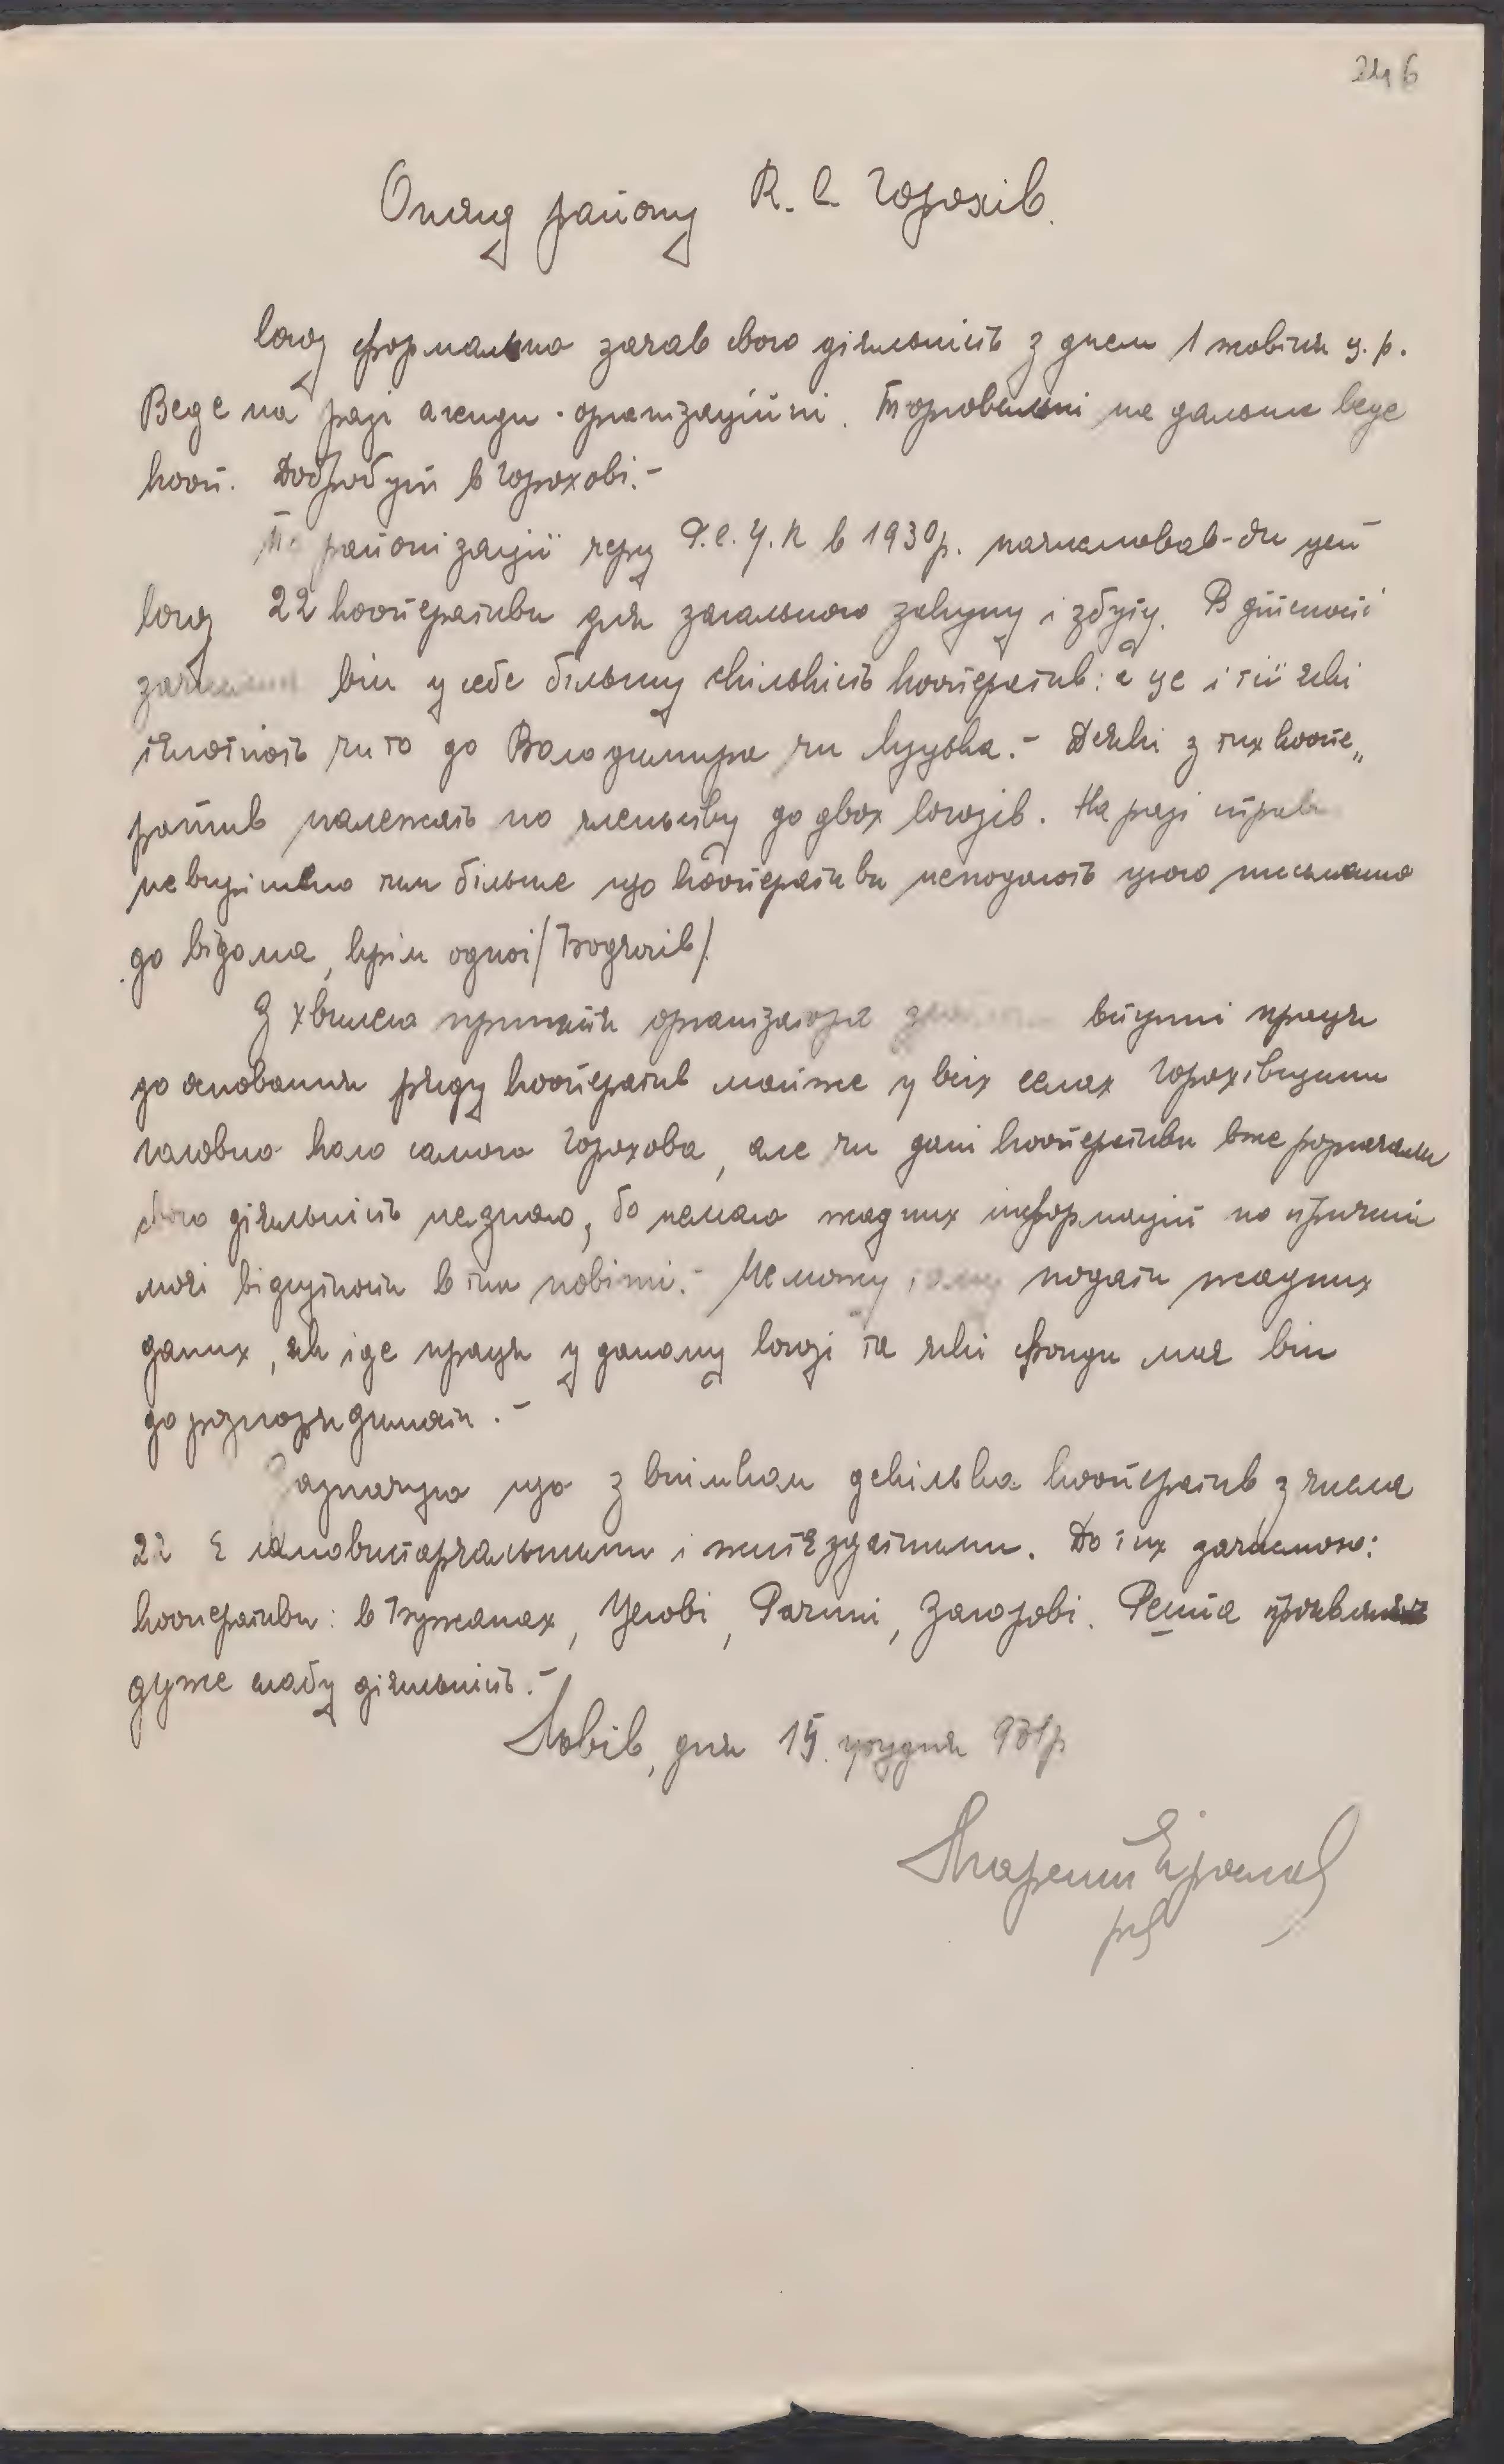 246
Огляд району К. С. Горохів.
Союз формально зачав свою діяльність з днем 1 жовтня ц. р.
Веде на разі агенди - організаційні. Торговельні на дальше веде
кооп. Добробут в Горохові.-
По районізації через Р.С.У.К в 1930 р. начислював-би цей
союз 22 кооперативи для загального закупу і збуту. В дійсности
він у себе більшу скількість кооператив: а це і тії які
тяготіють чи то до Володимира чи Луцька.- Деякі з тих коопе„
ратив належать по членству до двох союзів. На разі справа
невирішено тим більше що кооперативи неподають цього письменно
до відома, крім одної /Водятків/.
З хвилею приняття організатора вступні праця
до основання ряду кооператив майже у всіх селах Горохівщини
головно коло самого Горохова, але чи дані кооперативи вже розпочали
свою діяльність незнаю, бо немаю жадних інформацій по причині
моєї відсутности в тім повіті.- Неможу тому подати жадних
даних, як іде праця у даному союзі та які фонди має він
до розпорядимости.-
Зазначую що з виїмком декілька кооператив з числа
22 є самовистарчальними і життєздатними. До тих зачислюю:
кооперативи: в Бужанах, Угові, Рачині, Загорові. Решта проявляє
дуже слабу діяльність.-
Львів, дня 15. грудня 931 р